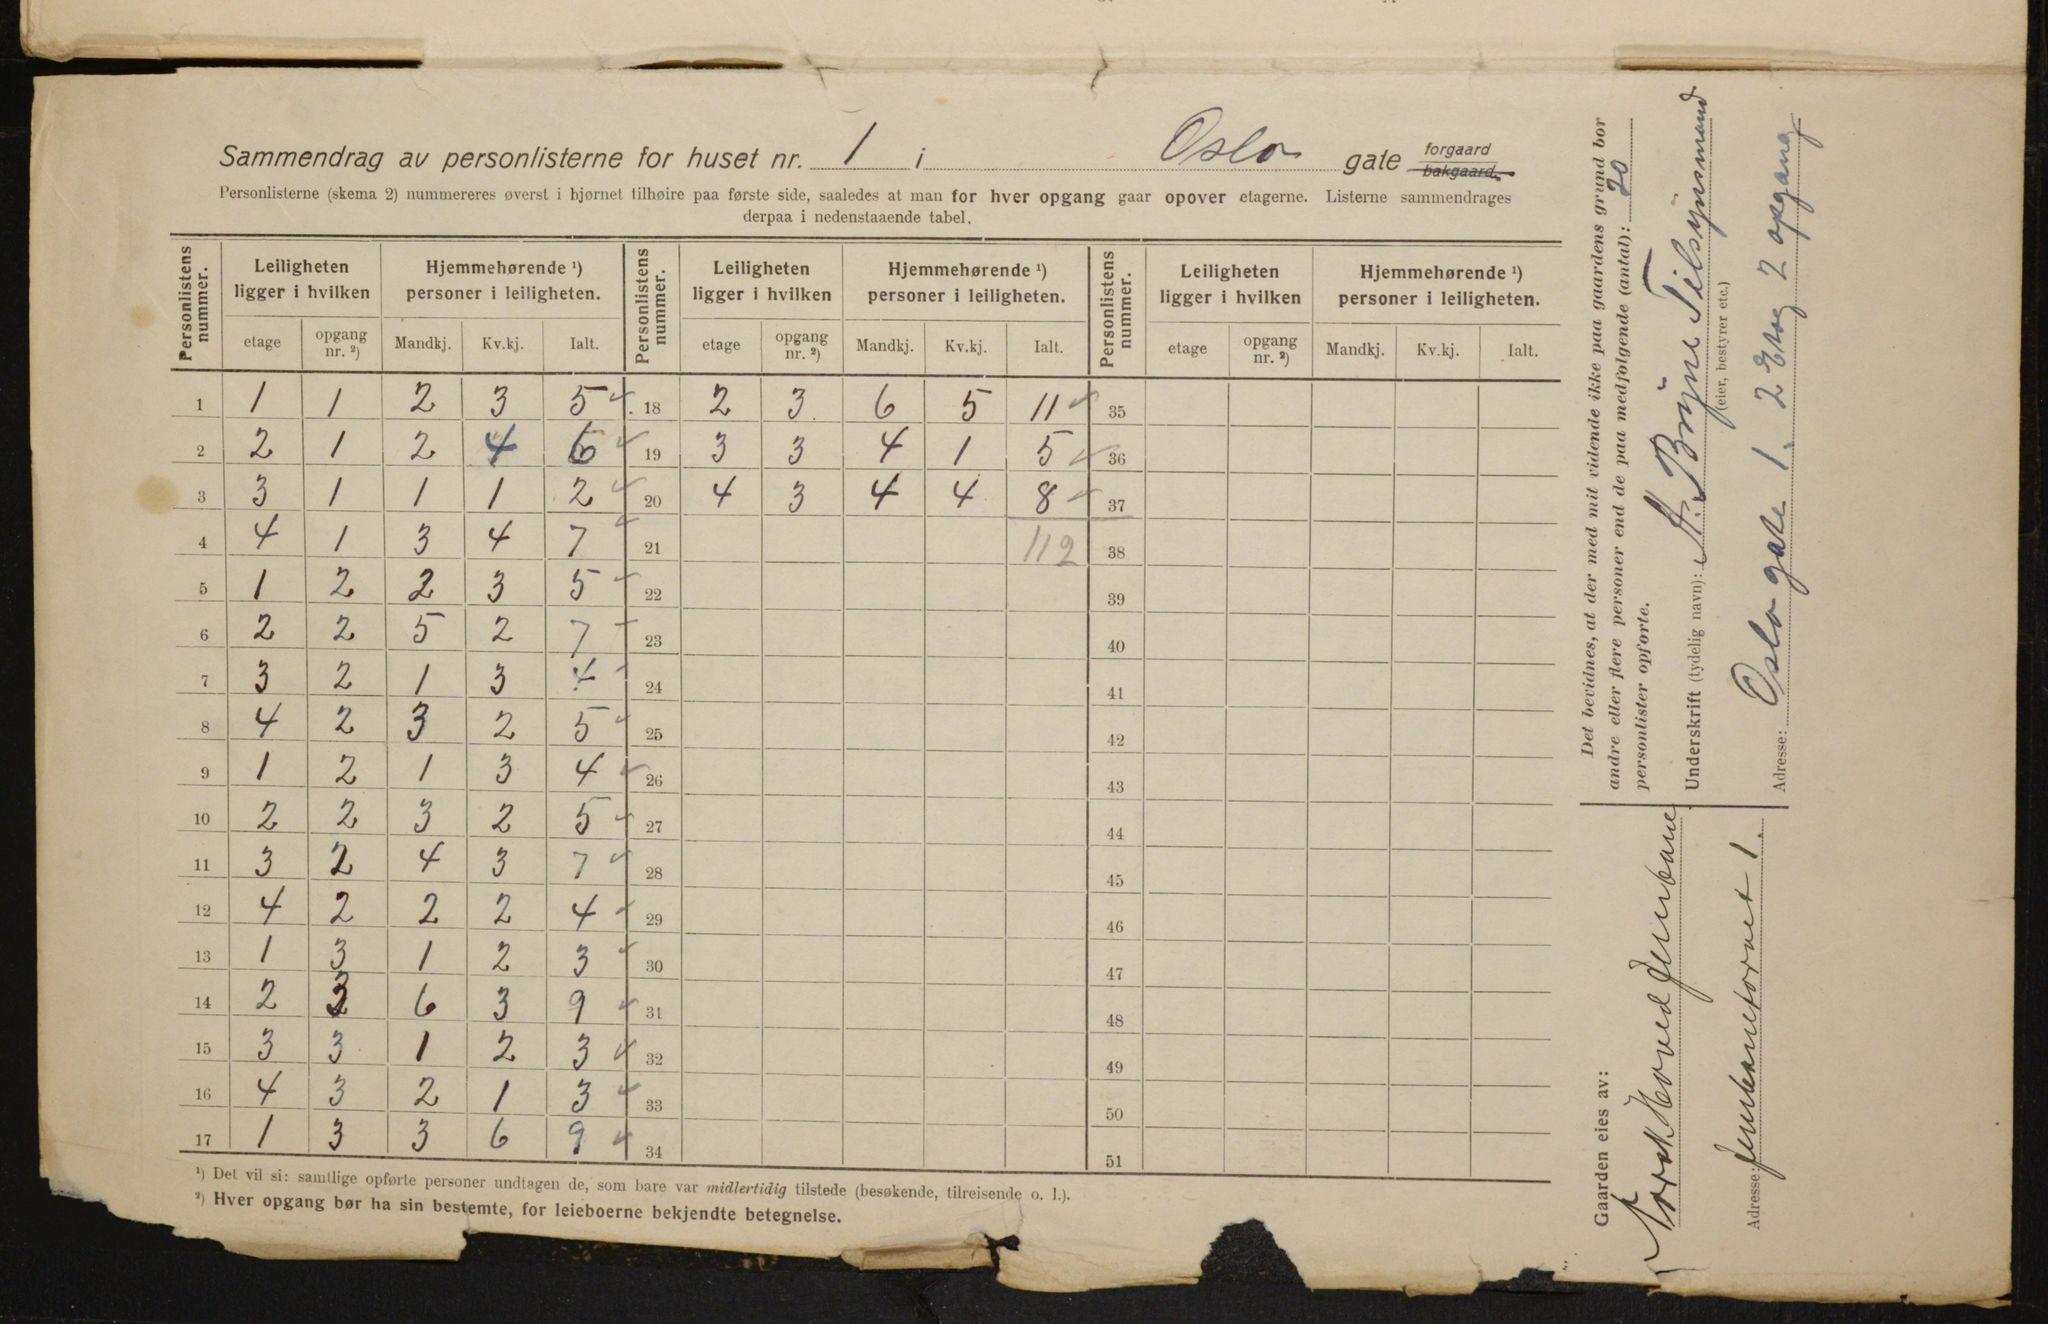 Sammendrag av personlisterne for huset nr. 1 i Oslo gate forgaard bakgaard.
Personlisterne (skema 2) nummereres øverst i hjørnet tilhøire paa første side, saaledes at man for hver opgang gaar opover etagerne. Listerne sammendrages
derpaa i nedenstaaende tabel.
Personlistens nummer. Leiligheten ligger i hvilken Hjemmehørende ¹) personer i leiligheten. Personlistens nummer. Leiligheten ligger i hvilken Hjemmehørende ¹) personer i leiligheten. Personlistens nummer. Leiligheten ligger i hvilken Hjemmehørende ¹) personer i leiligheten.
etage opgang nr. ²) Mandkj. Kv.kj. Ialt. etage opgang nr. ²) Mandkj. Kv.kj. Ialt. etage opgang nr. ²) Mandkj. Kv.kj. Ialt.
1 1 1 2 3 5 18 2 3 6 5 11 35
2 2 1 2 4 6 19 3 3 4 1 5 36
3 3 1 1 1 2 20 4 3 4 4 8 37
4 4 1 3 4 7 21 112 38
5 1 2 2 3 5 22 39
6 2 2 5 2 7 23 40
7 3 2 1 3 4 24 41
8 4 2 3 2 5 25 42
9 1 2 1 3 4 26 43
10 2 2 3 2 5 27 44
11 3 2 4 3 7 28 45
12 4 2 2 2 4 29 46
13 1 3 1 2 3 30 47
14 2 3 6 3 9 31 48
15 3 3 1 2 3 32 49
16 4 3 2 1 3 33 50
17 1 3 3 6 9 34 51
¹) Det vil si: samtlige opførte personer undtagen de, som bare var midlertidig tilstede (besøkende, tilreisende o. l.).
²) Hver opgang bør ha sin bestemte, for leieboerne bekjendte betegnelse.
Det bevidnes, at der med mit vidende ikke paa gaardens grund bor
andre eller flere personer end de paa medfølgende (antal): 20
personlister opførte.
Underskrift (tydelig navn): A. Brÿne Tilsynsmand
(eier, bestyrer etc.)
Adresse: Oslo gate 1. 2 Etg 2 opgang
Gaarden eies av:
Norsk Hoved Jernbane
Adresse: Jernbanetorvet 1.